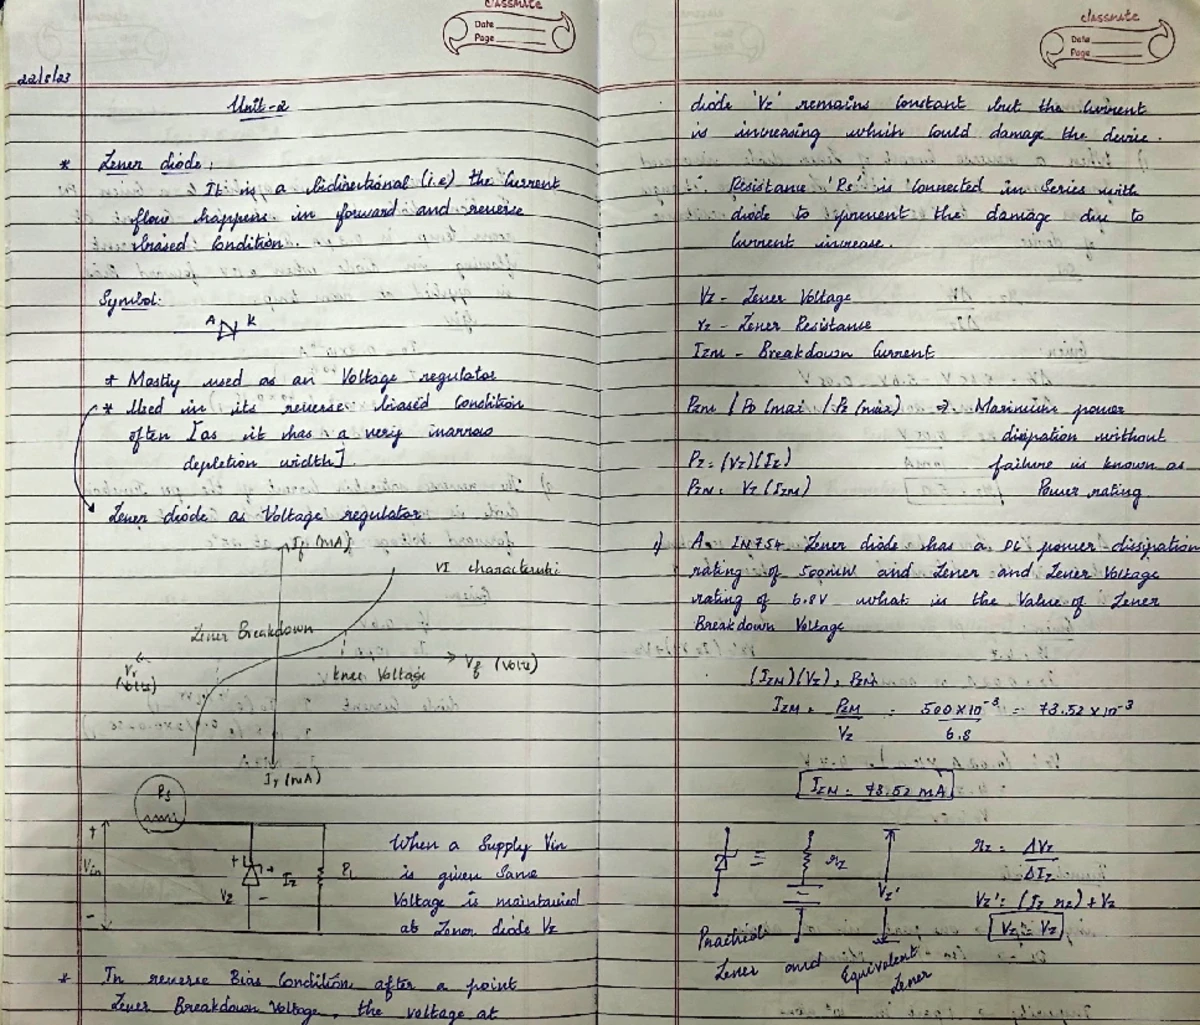 classmate
Date
Page
22/8/23
Unit-2
* Zener diode:
It is a bidirectional (i.e) the current
flow happens in forward and reverse
biased condition.
Symbol:
A K
* Mostly used as an Voltage regulator
* Used in its reverse biased condition
often [as it has a very narrow
depletion width].
Zener diode as Voltage regulator
If (mA)
VI characteristic
Zener Breakdown
Vr (volts)
knee Voltage
Vf (volts)
Ir (mA)
Rs
+
Vin
-
+
Vz
-
+
Iz
RL
When a Supply Vin
is given same
Voltage is maintained
at Zener diode Vz
* In reverse Bias Condition after a point
Zener Breakdown Voltage, the voltage at
classmate
Date
Page
diode 'Vz' remains constant but the current
is increasing which could damage the device.
Resistance 'Rs' is connected in Series with
diode to prevent the damage due to
current increase.
Vz - Zener Voltage
rz - Zener Resistance
IZM - Breakdown Current
PZM / PD (max) / Pz (max) ⇒ Maximum power
disipation without
Pz = (Vz)(Iz) failure is known as
PZM = Vz (IZM) Power rating
1) A IN754 Zener diode has a DC power dissipation
rating of 500mW and Zener and Zener Voltage
rating of 6.8V what is the Value of Zener
Breakdown Voltage
(IZM)(Vz) = PZM
IZM = PZM / Vz = 500 × 10⁻³ / 6.8 = 73.52 × 10⁻³
IZM = 73.52 mA
≡ rz
Vz'
rz = ΔVz / ΔIz
Vz' = (Iz rz) + Vz
Vz' = Vz
Practical
Zener and
Equivalent
Zener